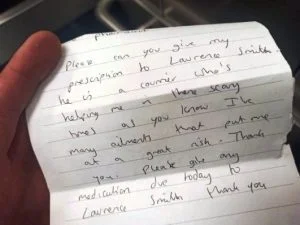 Please can you give my
prescription to Lawrence Smith.
he is a courier who's
helping me in these scary
times as you know I've
many ailments that put me
at a great risk. Thank
you. Please give any
medication due today to
Lawrence Smith thank you